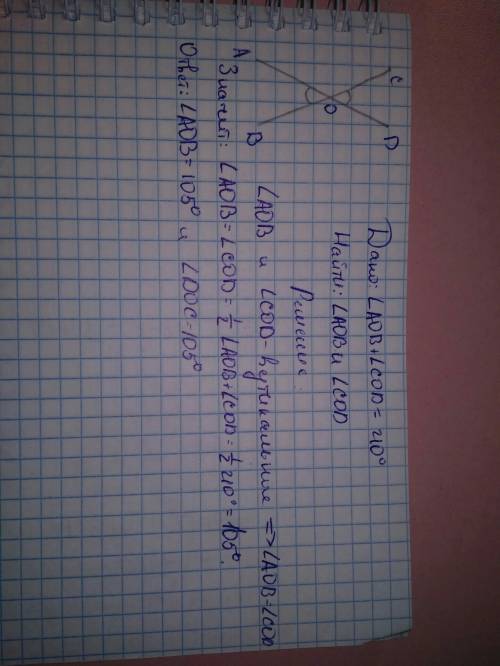 C
D
O
A
B
Дано: ∠AOB+∠COD=210°
Найти: ∠AOB и ∠COD
Решение:
∠AOB и ∠COD-вертикальные => ∠AOB=∠COD
Значит: ∠AOB=∠COD=½ ∠AOB+∠COD=½ 210°=105°.
Ответ: ∠AOB=105° и ∠DOC=105°